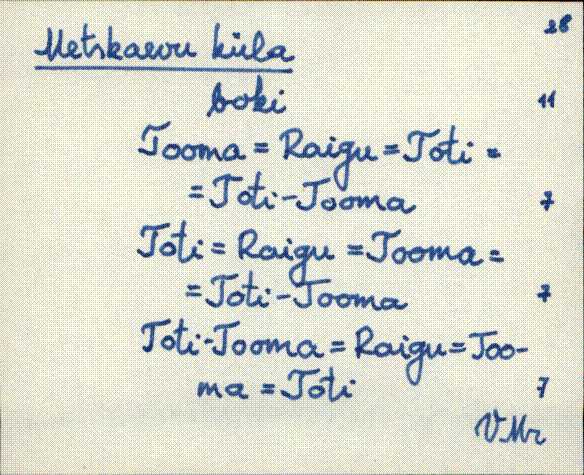 28
Metskaevu küla
boki 11
Tooma = Raigu = Toti =
= Toti-Tooma 7
Toti = Raigu = Tooma =
= Toti-Tooma 7
Toti-Tooma = Raigu = Too-
ma = Toti 7
VMr